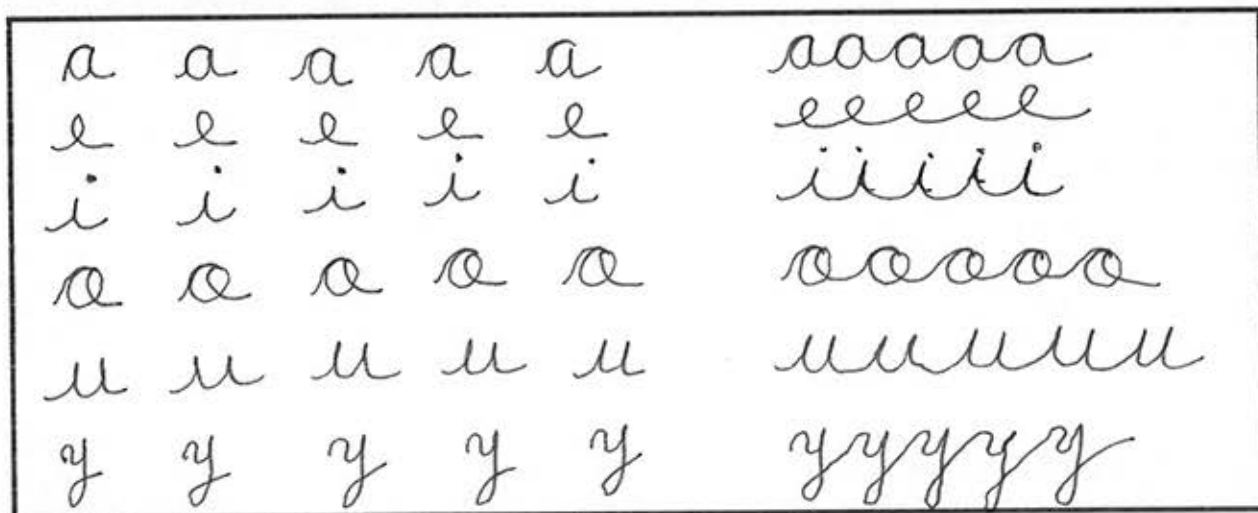 a a a a a aaaaa
e e e e e eeeee
i i i i i iiiii
o o o o o ooooo
u u u u u uuuuu
y y y y y yyyyy